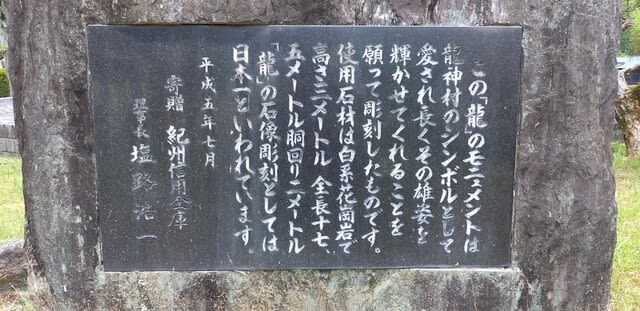 この「龍」のモニュメントは
龍神村のシンボルとして
愛され長くその雄姿を
輝かせてくれることを
願って彫刻したものです。
使用石材は白系花崗岩で
高さ三メートル 全長十七、
五メートル胴回り二メートル
「龍」の石像彫刻としては
日本一といわれています。
平成五年七月
寄贈 紀州信用金庫
理事長 塩路浩一